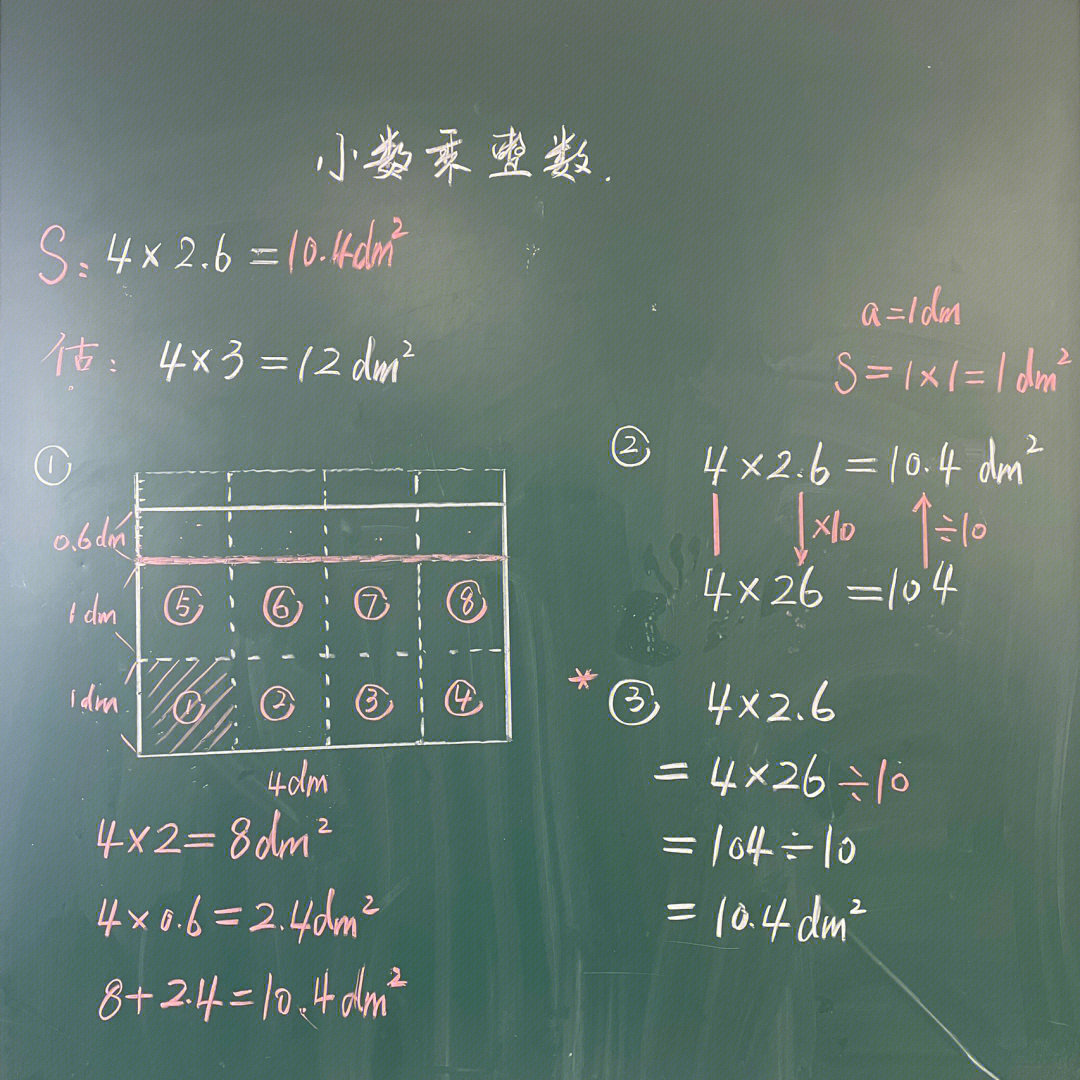 小数乘整数.
S: 4×2.6=10.4dm²
估: 4×3=12dm²
a=1dm
S=1×1=1dm²
①
0.6dm
1dm
⑤ ⑥ ⑦ ⑧
1dm
① ② ③ ④
4dm
4×2=8dm²
4×0.6=2.4dm²
8+2.4=10.4dm²
② 4×2.6=10.4 dm²
×10 ÷10
4×26=104
* ③ 4×2.6
=4×26÷10
=104÷10
=10.4dm²